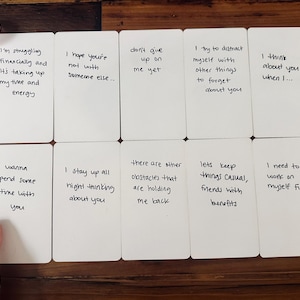 I'm struggling
financially and
its taking up
my time and
energy
I hope you're
not with
someone else...
don't give
up on
me yet
I try to distract
myself with
other things
to forget
about you
I think
about you
when I...
wanna
spend some
time with
you
I stay up all
night thinking
about you
there are other
obstacles that
are holding
me back
lets keep
things casual,
friends with
benefits
I need to
work on
myself